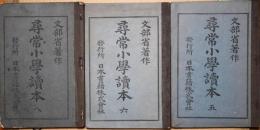 文部省著作
尋常小學讀本 八
發行所 日本書籍株式會社
文部省著作
尋常小學讀本 六
發行所 日本書籍株式會社
文部省著作
尋常小學讀本 五
發行所 日本書籍株式會社